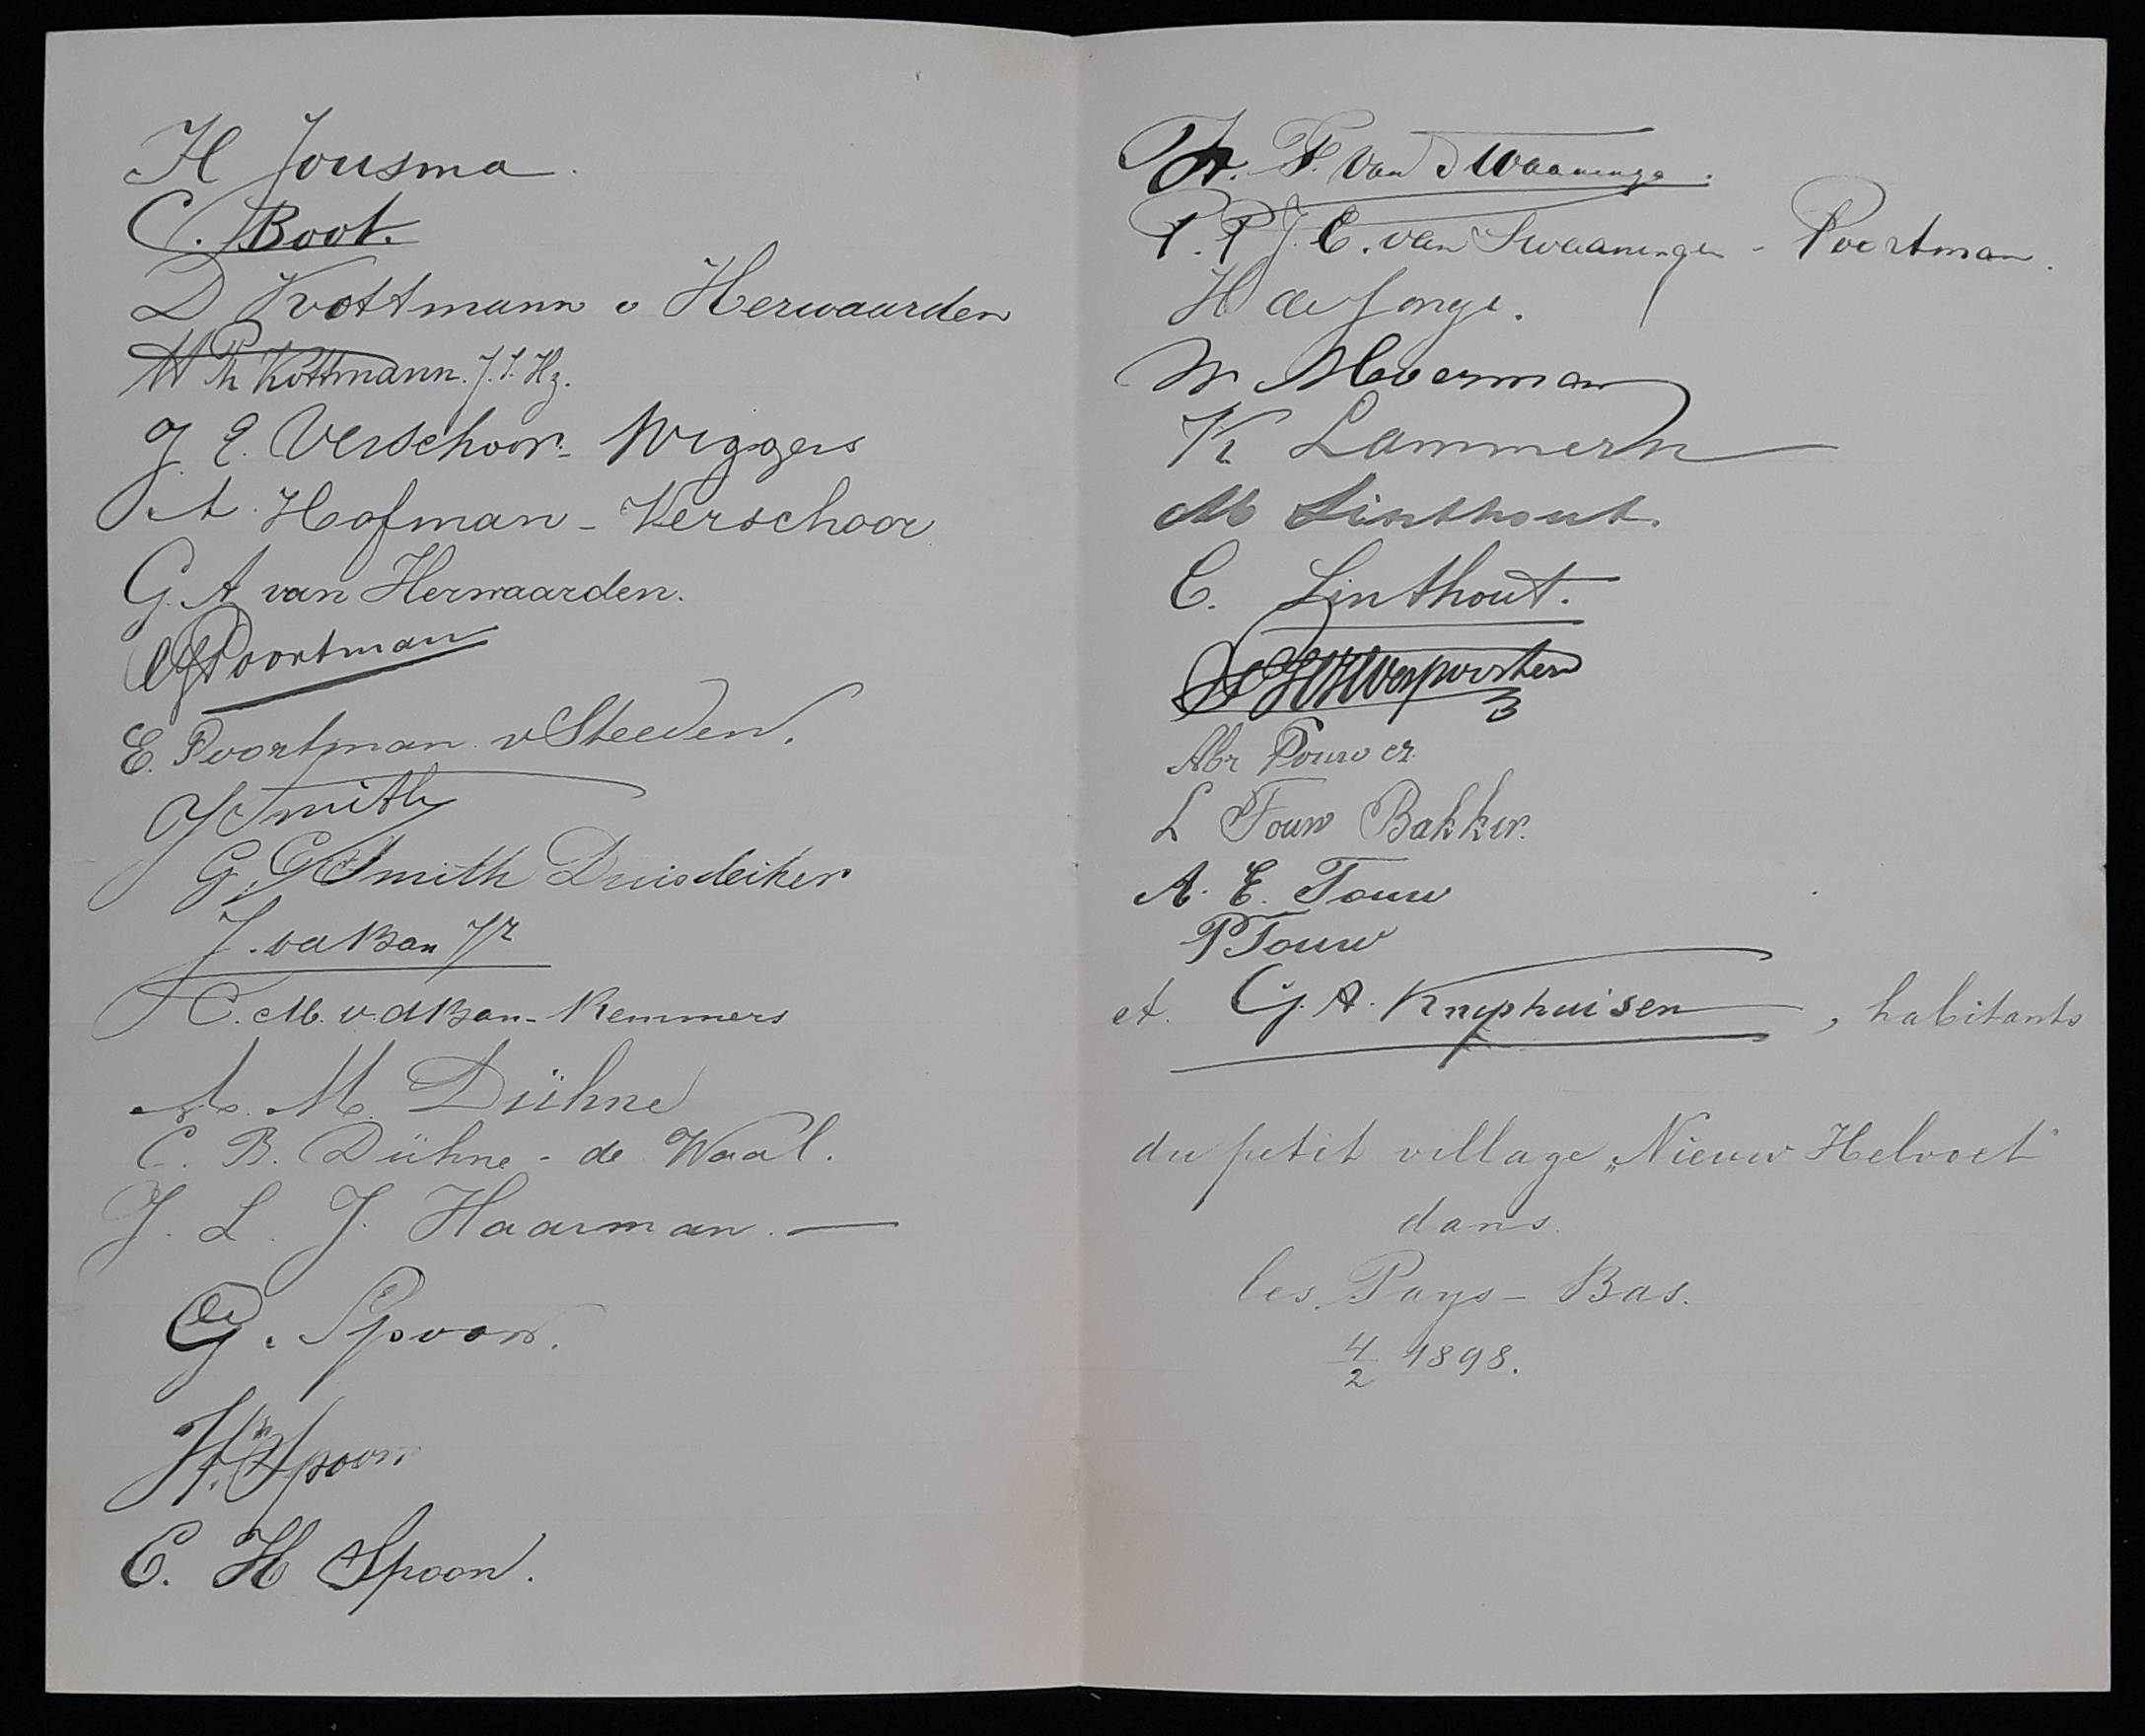 H Jousma.
C. Boot.
D Kottmann v Herwaarden
H Ph Kottmann. J.J. Hz.
J. E. Verschoor-Wiggers
A. Hofman-Verschoor
G. A van Herwaarden.
Poortman
E. Poortman v Steeden.
J Smith
G. E. Smith Duisdeiker
J. vd Ban Jr
C. M. v. d Ban-Remmers
A. M. Dühne
C. B. Dühne-de Waal.
J. L. J. Haarman.
G. Spoon.
H. Spoon.
C. H Spoon.
F. van Swaaninge.
P. P. J. C. van Swaaningen - Poortman.
H de Jonge.
W Moerman
K Lammern
M Linthout.
C. Linthout.
Verpoorten
Abr Pouwer.
L Touw Bakker.
A. E. Touw
P Touw
et. G. A. Knyphuisen, habitants
du petit village „Nieuw Helvoet"
dans
les Pays-Bas.
4/2 1898.